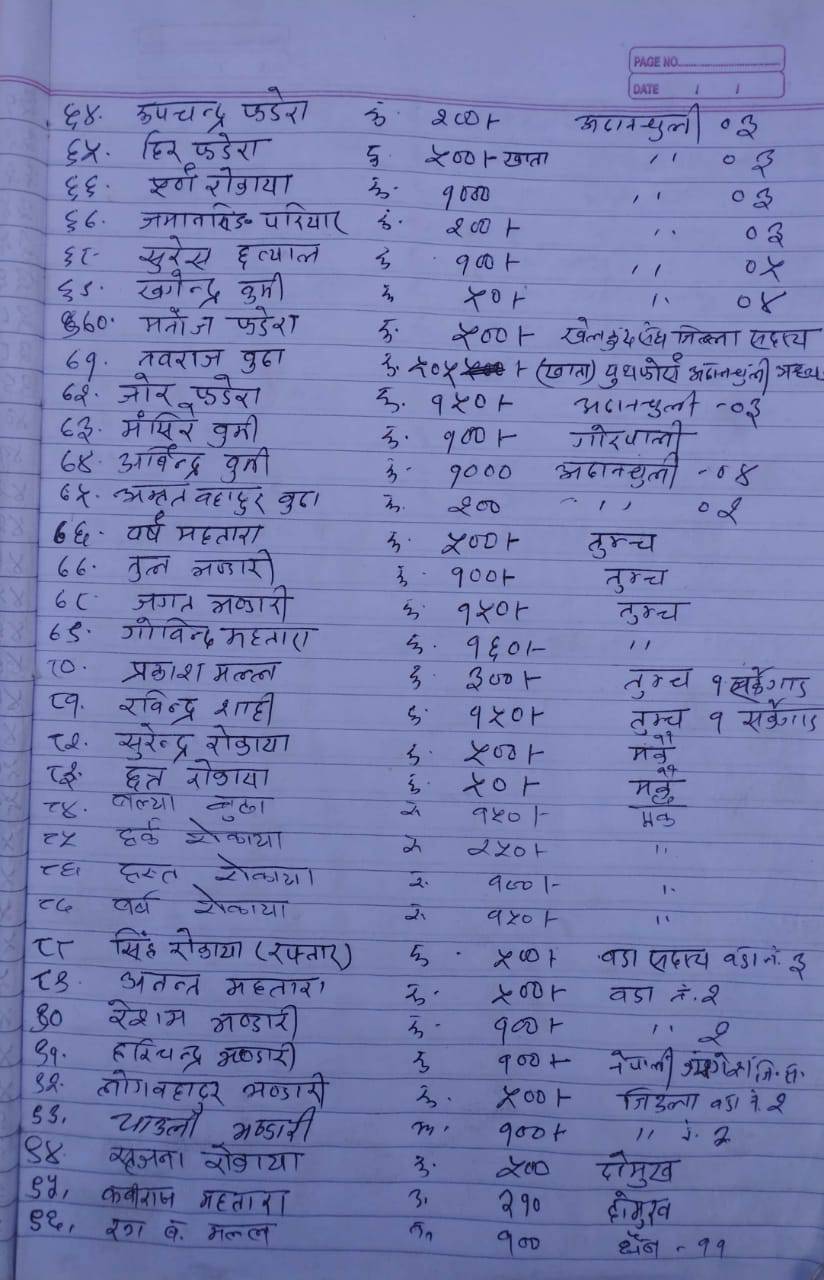 PAGE NO.
DATE / /
६४. रुपचन्द्र फडेरा रु. २००।- अदानचुली ०३
६५. हिर फडेरा रु. ५००।- खाता ,, ०३
६६. रोकाया रु. १००० ,, ०३
६७. जमानसिङ परियार रु. २००।- ,, ०३
६८ सुरेस छत्याल रु. १००।- ,, ०५
६९. खगेन्द्र वुमी रु. ५०।- ,, ०४
७०. मनोज फडेरा रु. ५००।- खेलकुद संघ जिल्ला सदस्य
७१. नवराज वुढा रु. ५०५।- (खाता) युथफोर्स अदानचुली
७२. जोर फडेरा रु. १५०।- अदानचुली -०३
७३. मंसिर वुमी रु. १००।- गोरपाली
७४. अर्विन्द्र वुमी रु. १००० अदानचुली -०४
७५. अमृत वहादुर वुढा रु. २०० ,, ०२
७६. वर्ष महतारा रु. ५००।- तुम्च
७७. तुल भण्डारी रु. १००।- तुम्च
७८ जगत भण्डारी रु. १५०।- तुम्च
७९. गोविन्द महतारा रु. १६०।- ,,
८०. प्रकाश मल्ल रु. ३००।- तुम्च १ सर्केगाड
८१. रविन्द्र शाही रु. १५०।- तुम्च १ सर्केगाड
८२. सुरेन्द्र रोकाया रु. ५००।-
८३. छत्र रोकाया रु. ५०।-
८४. रु. १५०।-
८५ हर्क रोकाया रु. २५०।- ,,
८६ हस्त रोकाया रु. १००।- ,,
८७ वर्ष रोकाया रु. १५०।- ,,
८८ सिंह रोकाया (रफ्तार) रु. ५००।- वडा सदस्य वडा नं. ३
८९. अनन्त महतारा रु. ५००।- वडा नं. २
९० रेशम भण्डारी रु. १००।- ,, २
९१. हरिचन्द्र भण्डारी रु १००।- नेपाली
९२. लोगवहादुर भण्डारी रु. ५००।- जिउला वडा नं. २
९३. भण्डारी रु. १००।- ,, नं. २
९४ सृजना रोकाया रु. ५०० दोमुख
९५. कवीराज महतारा रु. २१० दोमुख
९६. व. मल्ल रु. १०० - ११